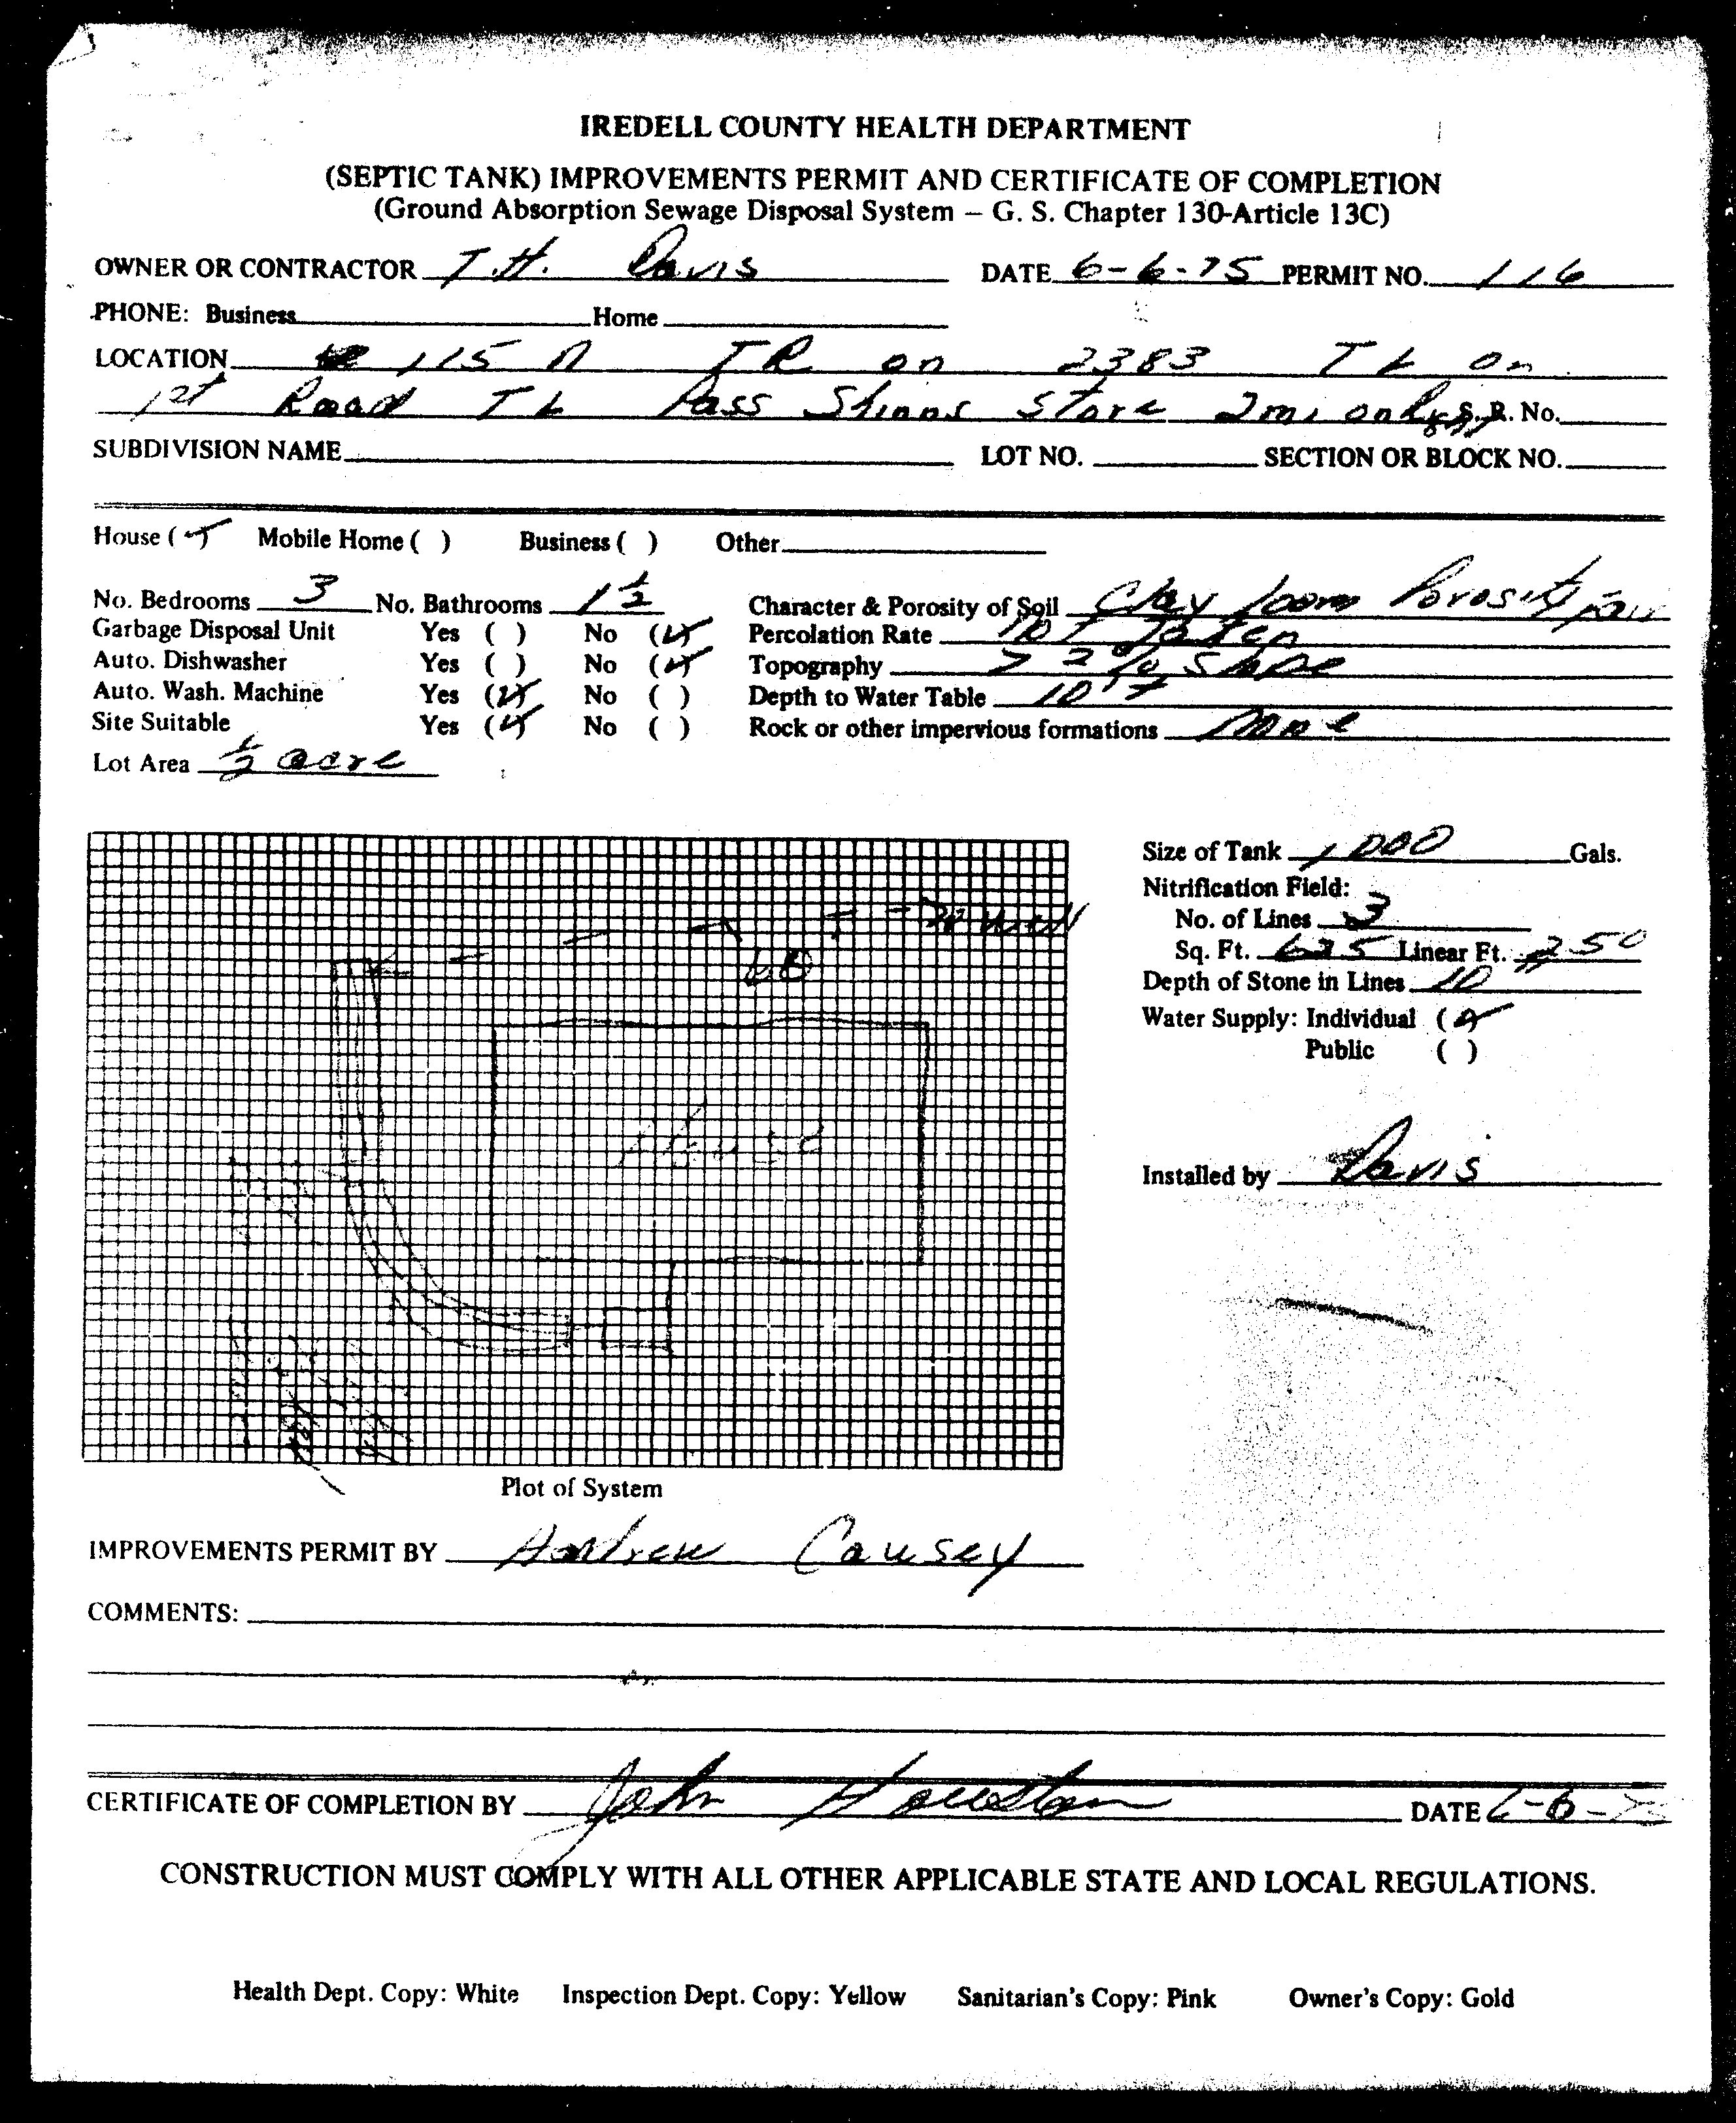 IREDELL COUNTY HEALTH DEPARTMENT
(SEPTIC TANK) IMPROVEMENTS PERMIT AND CERTIFICATE OF COMPLETION
(Ground Absorption Sewage Disposal System – G. S. Chapter 130-Article 13C)
OWNER OR CONTRACTOR T.H. Davis DATE 6-6-75 PERMIT NO. 116
PHONE: Business Home
LOCATION 115 N TR on 2383 TL on
1st Road TL Pass Shinns Store 2 mi on Right S. R. No.
SUBDIVISION NAME LOT NO. SECTION OR BLOCK NO.
House (✓) Mobile Home ( ) Business ( ) Other
No. Bedrooms 3 No. Bathrooms 1 1/2 Character & Porosity of Soil Clay loom Porosity fair
Garbage Disposal Unit Yes ( ) No (✓) Percolation Rate not Taken
Auto. Dishwasher Yes ( ) No (✓) Topography > 2% Slope
Auto. Wash. Machine Yes (✓) No ( ) Depth to Water Table 10' +
Site Suitable Yes (✓) No ( ) Rock or other impervious formations none
Lot Area 1/2 acre
Size of Tank 1000 Gals.
Nitrification Field:
No. of Lines 3
Sq. Ft. 625 Linear Ft. 250
Depth of Stone in Lines 10
Water Supply: Individual (✓)
Public ( )
well
House
Installed by Davis
Plot of System
IMPROVEMENTS PERMIT BY Andrew Causey
COMMENTS:
CERTIFICATE OF COMPLETION BY John Houston DATE 6-6-75
CONSTRUCTION MUST COMPLY WITH ALL OTHER APPLICABLE STATE AND LOCAL REGULATIONS.
Health Dept. Copy: White Inspection Dept. Copy: Yellow Sanitarian's Copy: Pink Owner's Copy: Gold